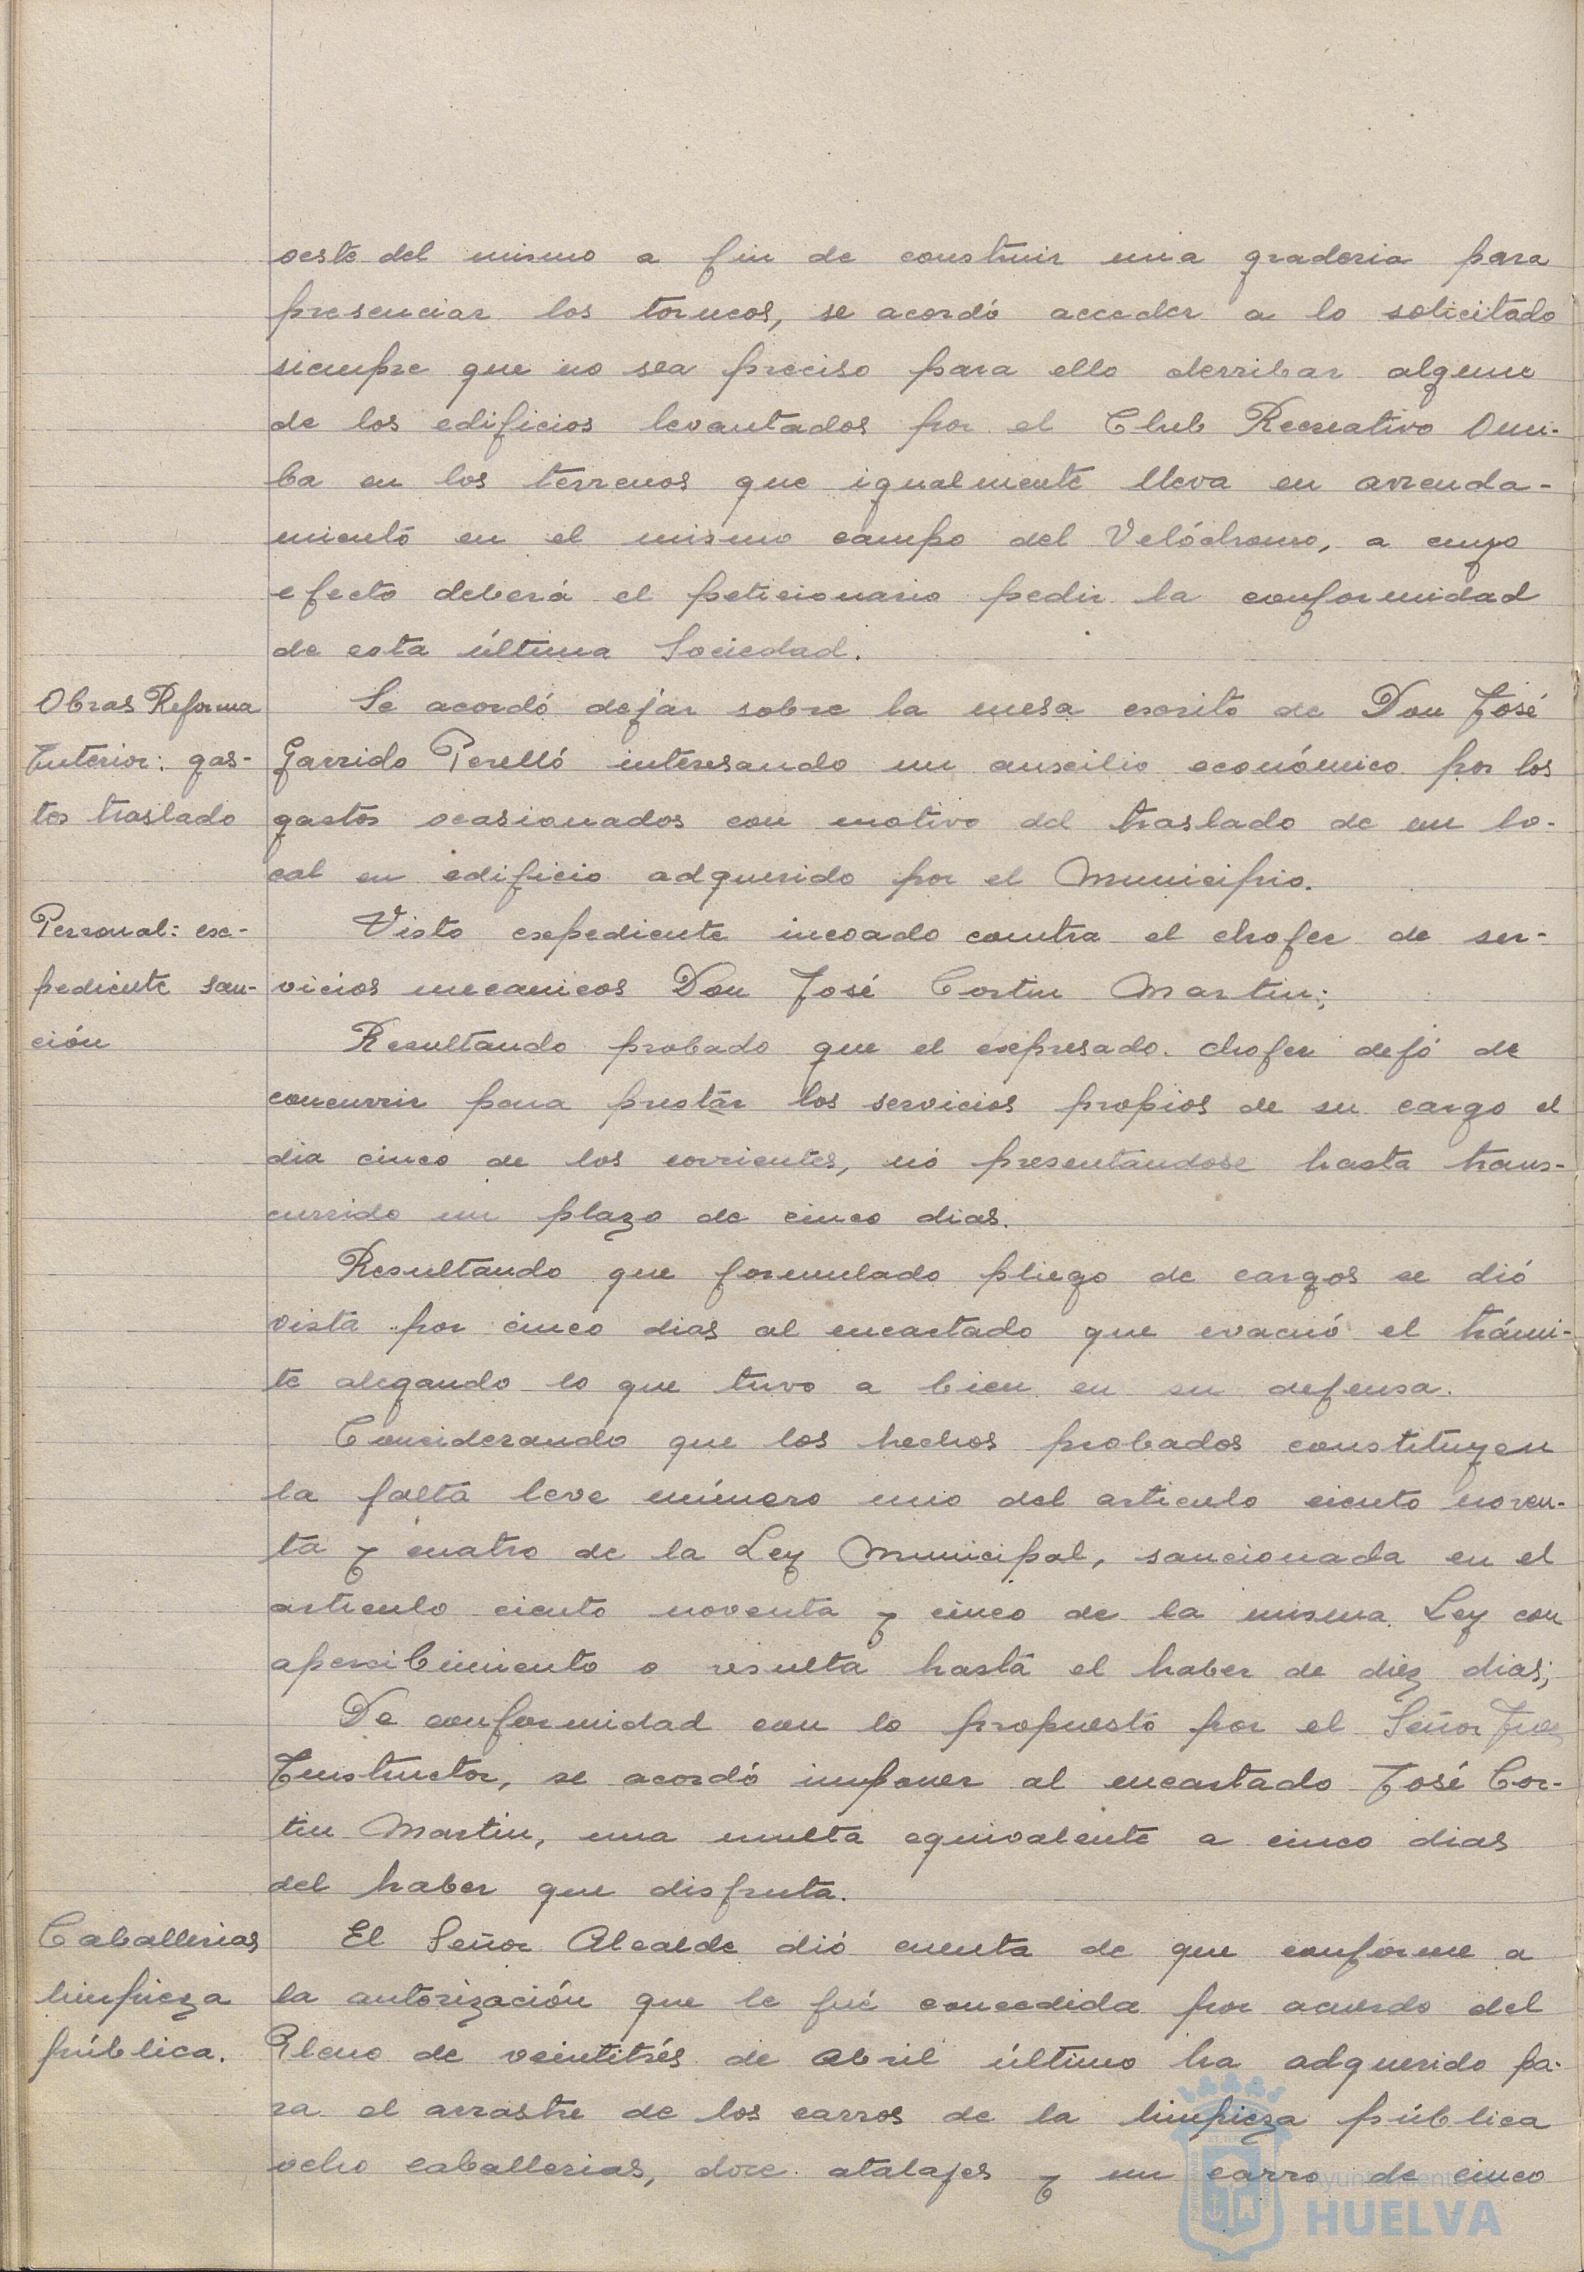 oeste del mismo a fin de construir una graderia para
presenciar los torneos, se acordó acceder a lo solicitado
siempre que no sea preciso para ello derribar alguno
de los edificios levantados por el Club Recreativo Onu-
ba en los terrenos que igualmente lleva en arrenda-
miento en el mismo campo del Velódromo, a cuyo
efecto deberá el peticionario pedir la conformidad
de esta última Sociedad.
Obras Reforma
Interior: gas-
tos traslado
Se acordó dejar sobre la mesa escrito de Don José
Garrido Perelló interesando un auxilio económico por los
gastos ocasionados con motivo del traslado de un lo-
cal en edificio adquerido por el Municipio.
Personal: ex-
pediente san-
ción
Visto expediente incoado contra el chofer de ser-
vicios mecanicos Don José Cortin Martin;
Resultando probado que el expresado chofer dejó de
concurrir para prestar los servicios propios de su cargo el
dia cinco de los corrientes, no presentandose hasta trans-
currido un plazo de cinco dias.
Resultando que formulado pliego de cargos se dió
vista por cinco dias al encartado que evacuó el trámi-
te alegando lo que tuvo a bien en su defensa.
Considerando que los hechos probados constituyen
la falta leve número uno del articulo ciento noven-
ta y cuatro de la Ley Municipal, sancionada en el
articulo ciento noventa y cinco de la misma Ley con
apercibimiento o resulta hasta el haber de diez dias;
De conformidad con lo propuesto por el Señor Juez
Instructor, se acordó imponer al encartado José Cor-
tin Martin, una multa equivalente a cinco dias
del haber que disfruta.
Caballerias
limpieza
pública.
El Señor Alcalde dió cuenta de que conforme a
la autorización que le fué concedida por acuerdo del
Pleno de veintitrés de Abril último ha adquerido pa-
ra el arrastre de los carros de la limpieza pública
ocho caballerias, doce atalajes y un carro de cinco
Ayuntamiento de
HUELVA